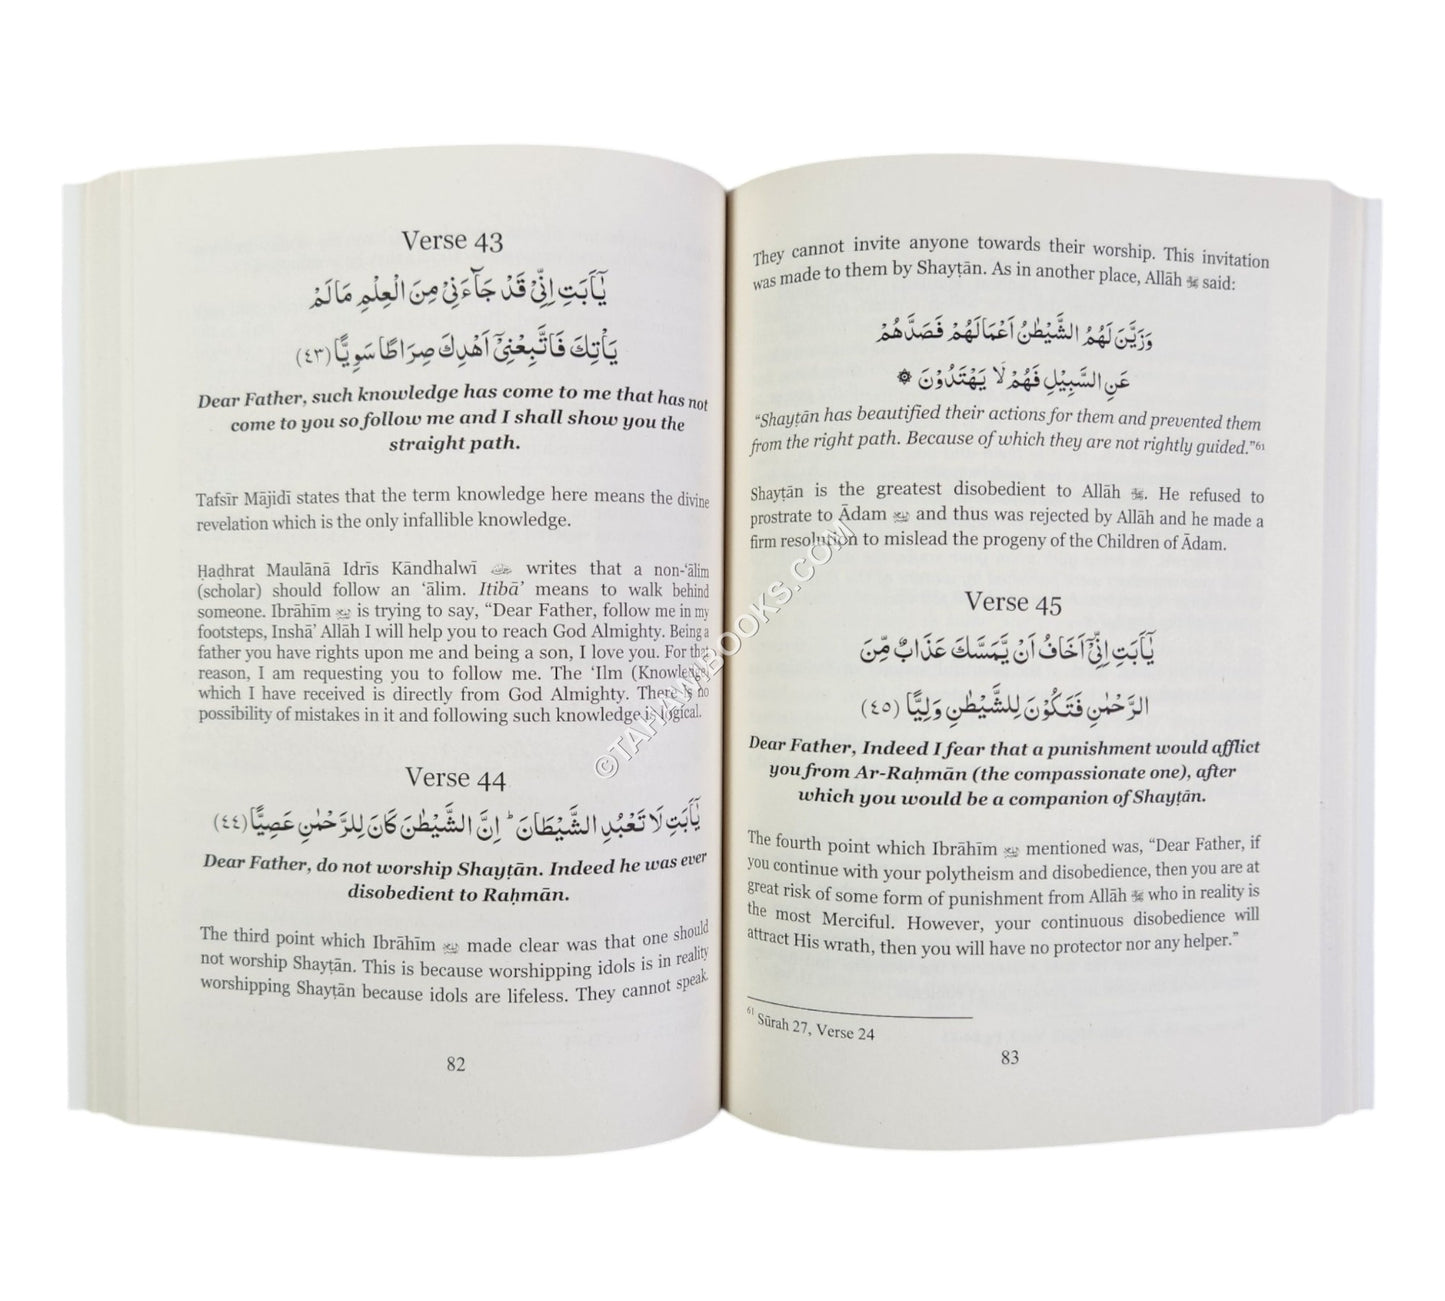 Verse 43
يٰٓاَبَتِ اِنِّىْ قَدْ جَآءَنِىْ مِنَ الْعِلْمِ مَا لَمْ
يَاْتِكَ فَاتَّبِعْنِىْٓ اَهْدِكَ صِرَاطًا سَوِيًّا (٤٣)
Dear Father, such knowledge has come to me that has not
come to you so follow me and I shall show you the
straight path.
Tafsīr Mājidī states that the term knowledge here means the divine
revelation which is the only infallible knowledge.
Ḥaḍhrat Maulānā Idrīs Kāndhalwī writes that a non-‘ālim
(scholar) should follow an ‘ālim. Itibā’ means to walk behind
someone. Ibrāhīm is trying to say, “Dear Father, follow me in my
footsteps, Inshā’ Allāh I will help you to reach God Almighty. Being a
father you have rights upon me and being a son, I love you. For that
reason, I am requesting you to follow me. The ‘Ilm (Knowledge)
which I have received is directly from God Almighty. There is no
possibility of mistakes in it and following such knowledge is logical.
Verse 44
يٰٓاَبَتِ لَا تَعْبُدِ الشَّيْطَانَ ؕ اِنَّ الشَّيْطٰنَ كَانَ لِلرَّحْمٰنِ عَصِيًّا (٤٤)
Dear Father, do not worship Shayṭān. Indeed he was ever
disobedient to Raḥmān.
The third point which Ibrāhīm made clear was that one should
not worship Shayṭān. This is because worshipping idols is in reality
worshipping Shayṭān because idols are lifeless. They cannot speak.
82
They cannot invite anyone towards their worship. This invitation
was made to them by Shayṭān. As in another place, Allāh ﷻ said:
وَزَيَّنَ لَهُمُ الشَّيْطٰنُ اَعْمَالَهُمْ فَصَدَّهُمْ
عَنِ السَّبِيْلِ فَهُمْ لَا يَهْتَدُوْنَ ۞
“Shayṭān has beautified their actions for them and prevented them
from the right path. Because of which they are not rightly guided.”61
Shayṭān is the greatest disobedient to Allāh ﷻ. He refused to
prostrate to Ādam and thus was rejected by Allāh and he made a
firm resolution to mislead the progeny of the Children of Ādam.
Verse 45
يٰٓاَبَتِ اِنِّىْٓ اَخَافُ اَنْ يَّمَسَّكَ عَذَابٌ مِّنَ
الرَّحْمٰنِ فَتَكُوْنَ لِلشَّيْطٰنِ وَلِيًّا (٤٥)
Dear Father, Indeed I fear that a punishment would afflict
you from Ar-Raḥmān (the compassionate one), after
which you would be a companion of Shayṭān.
The fourth point which Ibrāhīm mentioned was, “Dear Father, if
you continue with your polytheism and disobedience, then you are at
great risk of some form of punishment from Allāh ﷻ who in reality is
the most Merciful. However, your continuous disobedience will
attract His wrath, then you will have no protector nor any helper.”
61 Sūrah 27, Verse 24
83
©TAHAWIBOOKS.COM